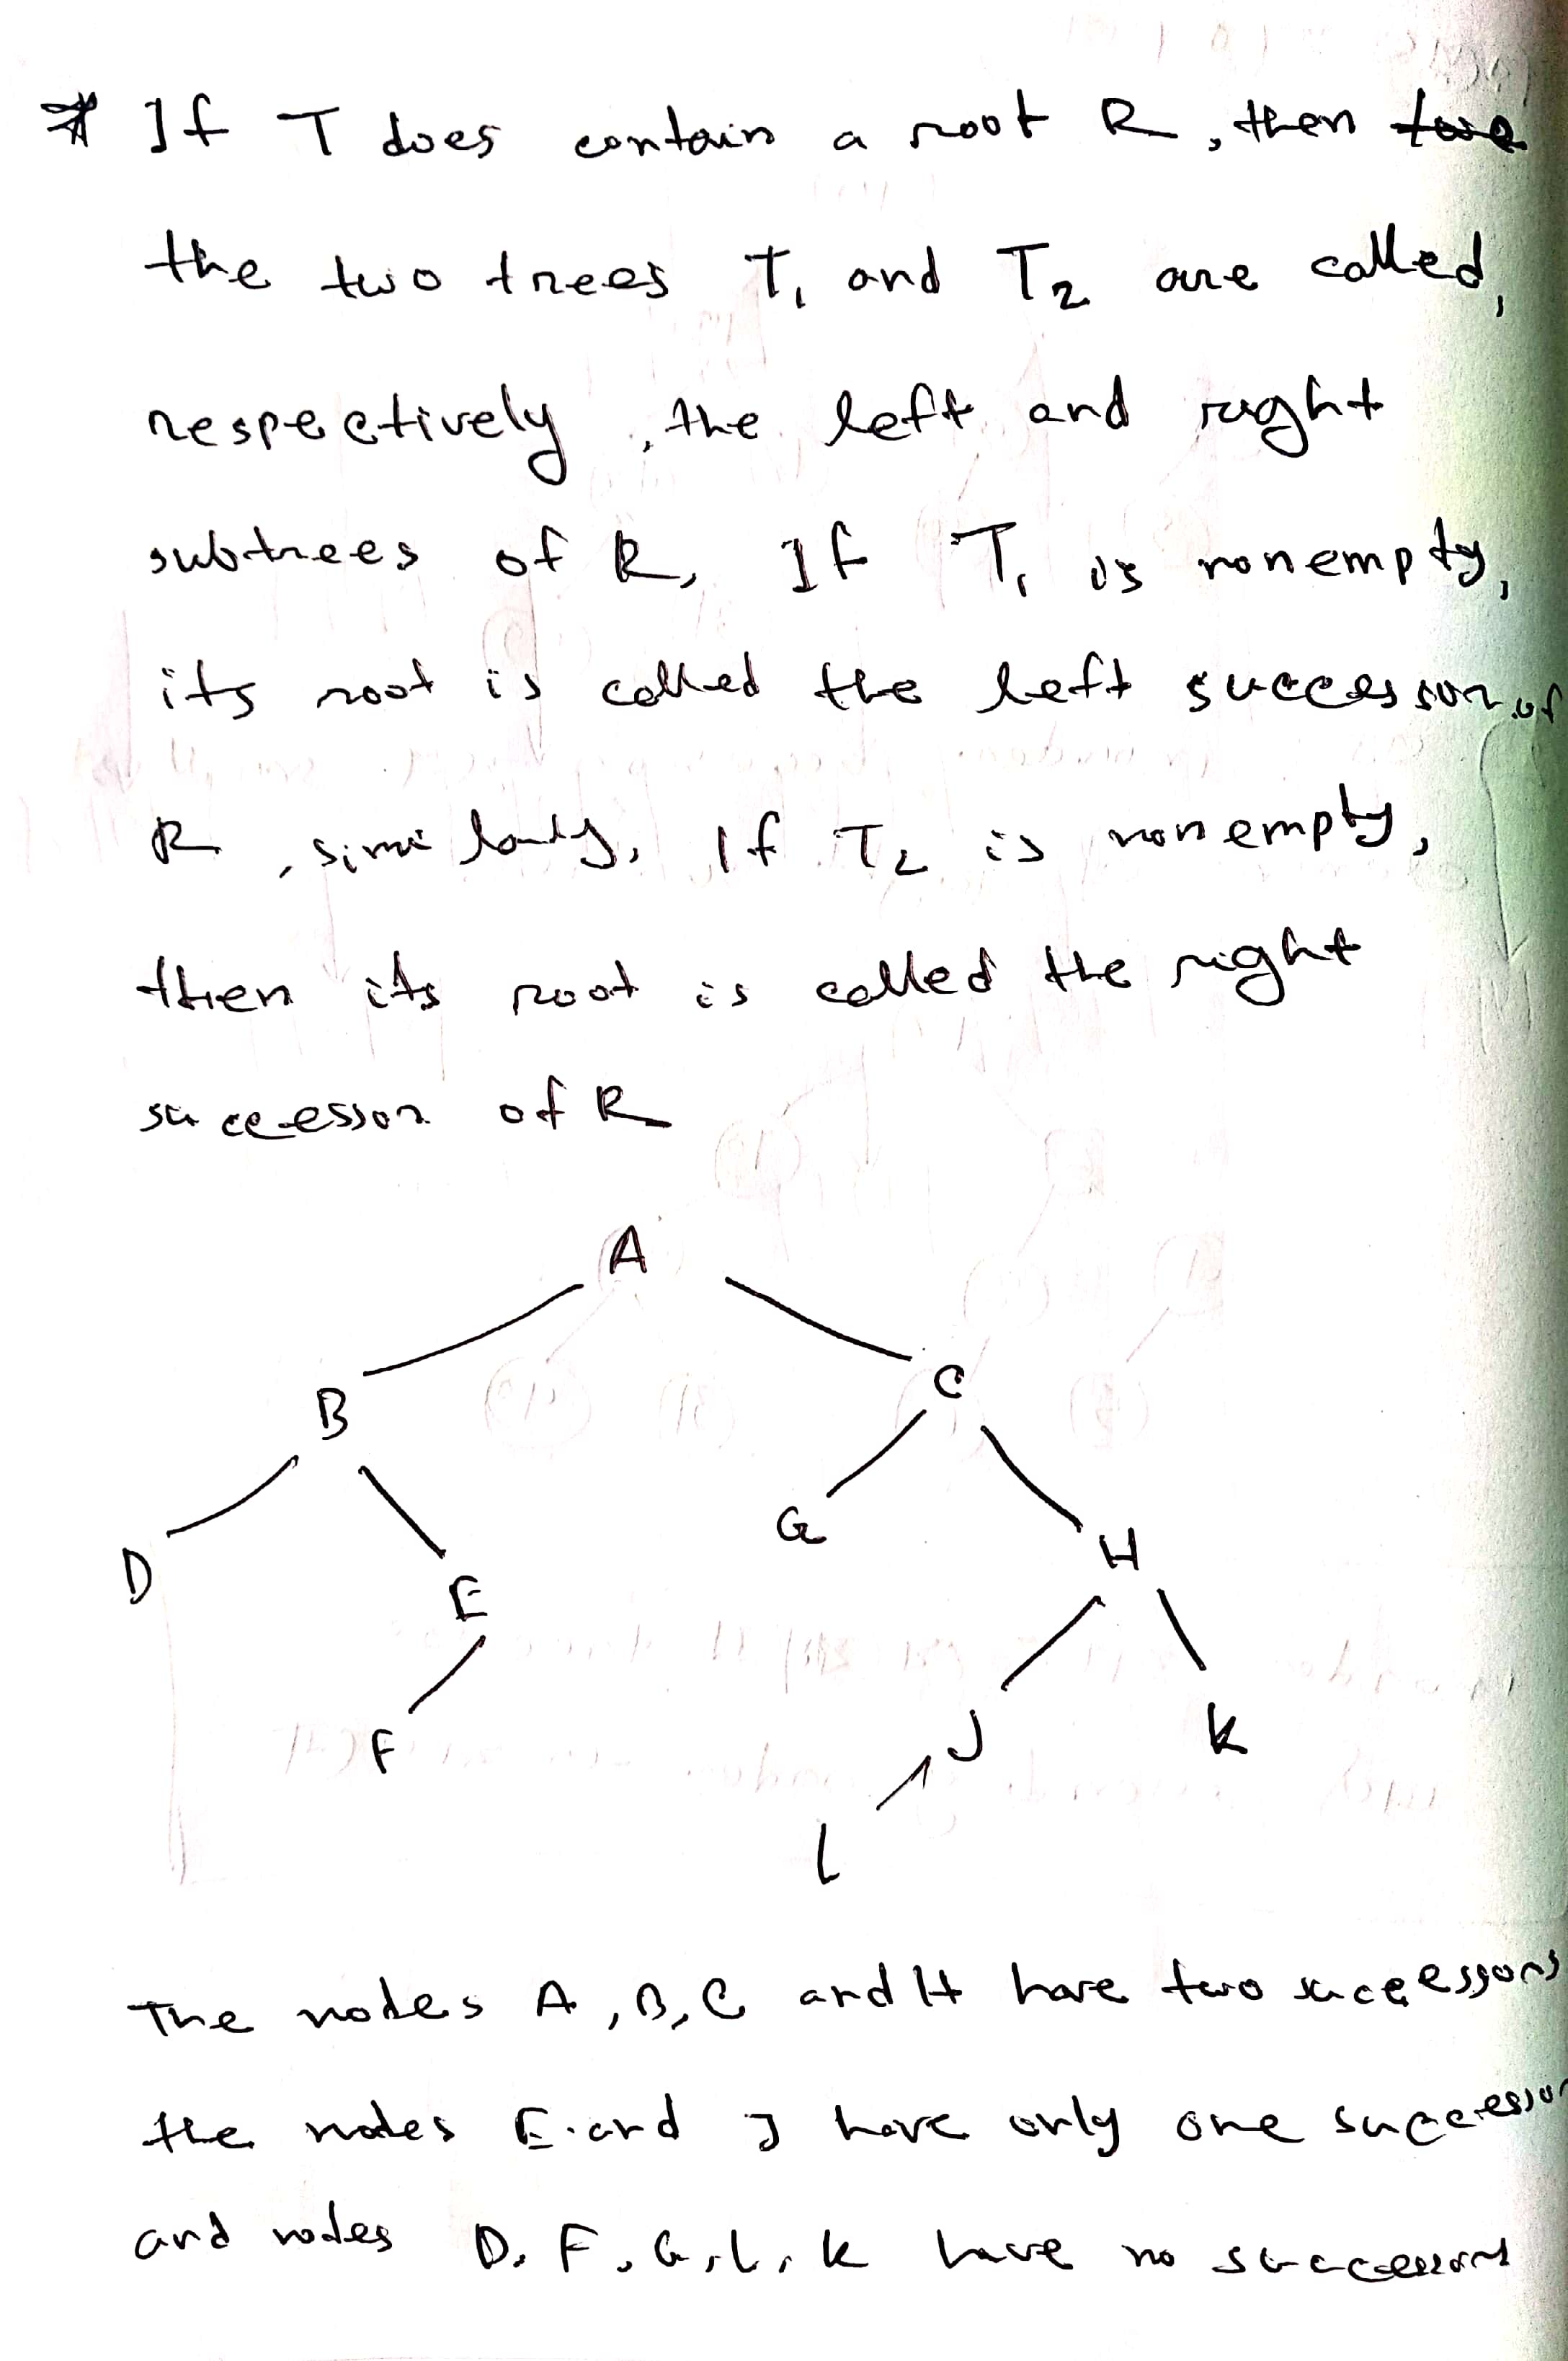 * If T does contain a root R, then
the two trees T₁ and T₂ are called,
respectively, the left and right
subtrees of R, If T₁ is nonempty,
its root is called the left successor of
R, similarly, If T₂ is nonempty,
then its root is called the right
successor of R
A
B C
D E G H
F J K
L
The nodes A, B, C and H have two successors
the nodes E and J have only one successor
and nodes D, F, G, L, K have no successors